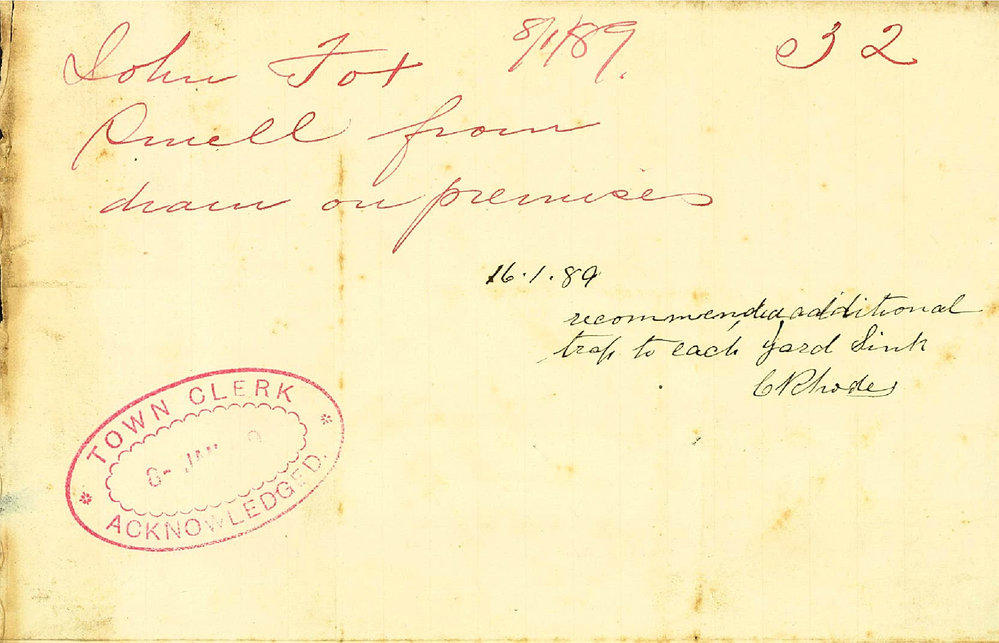 John Fox 8/1/89. 32
Smell from
drain on premises
16.1.89
recommended additional
trap to each yard Sink
C Rhodes
TOWN CLERK
8- JAN 9
ACKNOWLEDGED.